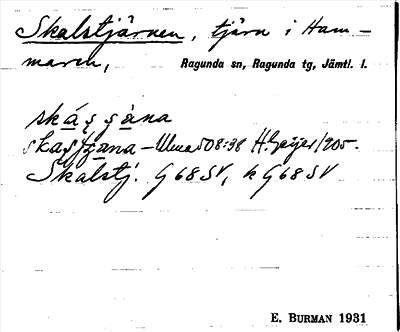 Skalstjärnen, tjärn i Ham-
maren, Ragunda sn, Ragunda tg, Jämtl. l.
skáʂʂàna
skaʂʂana – Ulma 508:38 H. Geijer 1905.
Skalstj. G 68 SV, k G 68 SV
E. BURMAN 1931